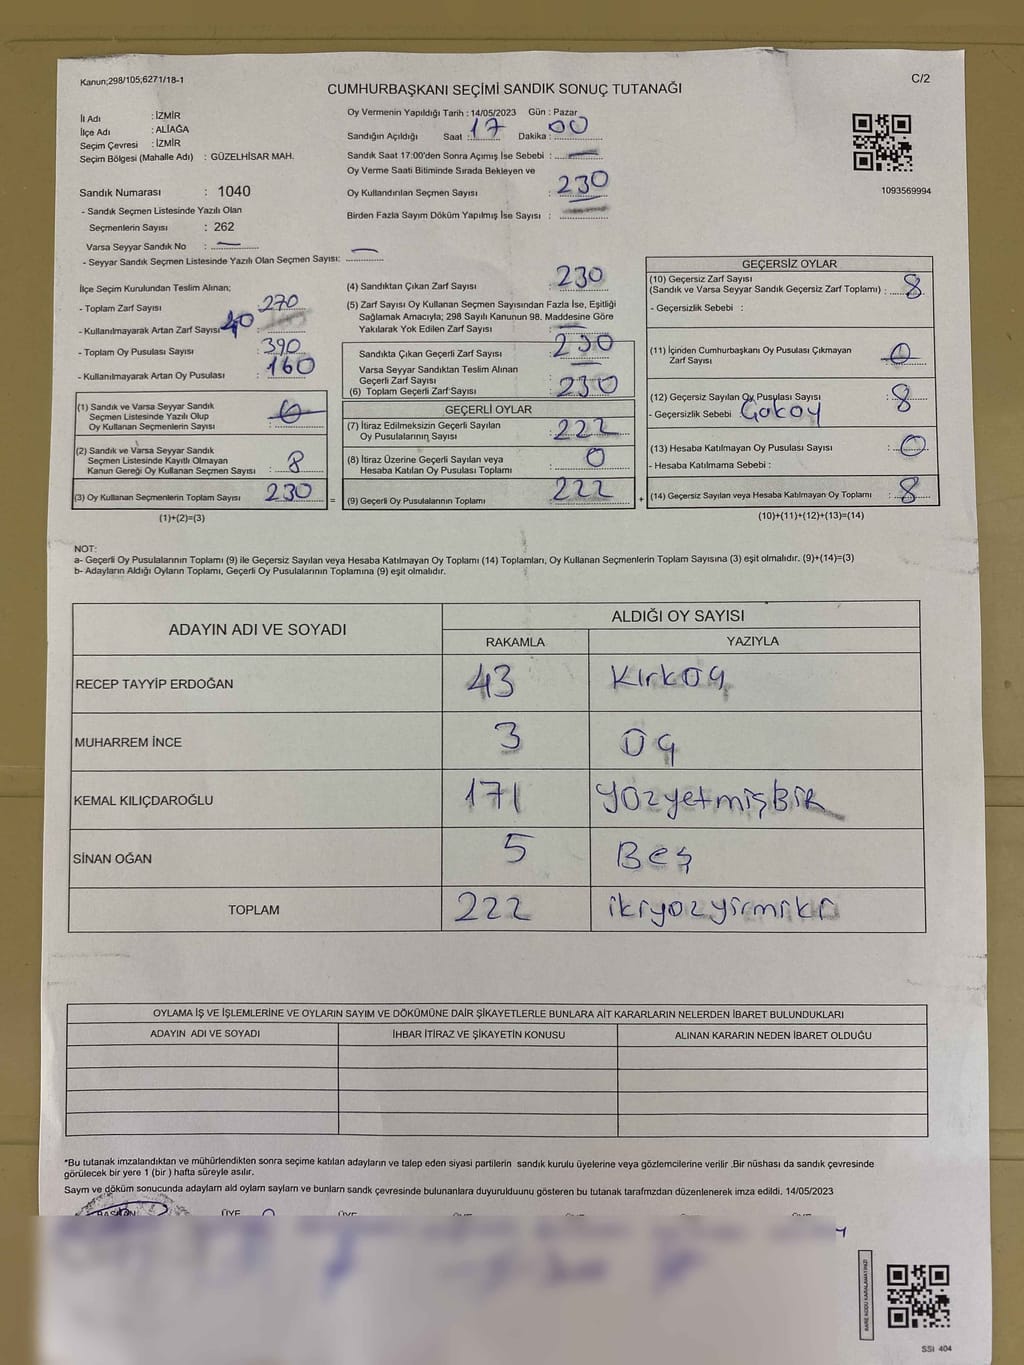 Kanun;298/105;6271/18-1
C/2
CUMHURBAŞKANI SEÇİMİ SANDIK SONUÇ TUTANAĞI
İl Adı : İZMİR
İlçe Adı : ALİAĞA
Seçim Çevresi : İZMİR
Seçim Bölgesi (Mahalle Adı) : GÜZELHİSAR MAH.
Sandık Numarası : 1040
- Sandık Seçmen Listesinde Yazılı Olan
Seçmenlerin Sayısı : 262
Varsa Seyyar Sandık No :
- Seyyar Sandık Seçmen Listesinde Yazılı Olan Seçmen Sayısı:
Oy Vermenin Yapıldığı Tarih : 14/05/2023 Gün : Pazar
Sandığın Açıldığı Saat : 17 Dakika : 00
Sandık Saat 17:00'den Sonra Açımış İse Sebebi :
Oy Verme Saati Bitiminde Sırada Bekleyen ve
Oy Kullandırılan Seçmen Sayısı : 230
Birden Fazla Sayım Döküm Yapılmış İse Sayısı :
1093569994
İlçe Seçim Kurulundan Teslim Alınan;
- Toplam Zarf Sayısı : 270
- Kullanılmayarak Artan Zarf Sayısı : 40
- Toplam Oy Pusulası Sayısı : 390
- Kullanılmayarak Artan Oy Pusulası : 160
(1) Sandık ve Varsa Seyyar Sandık
Seçmen Listesinde Yazılı Olup
Oy Kullanan Seçmenlerin Sayısı :
(2) Sandık ve Varsa Seyyar Sandık
Seçmen Listesinde Kayıtlı Olmayan
Kanun Gereği Oy Kullanan Seçmen Sayısı : 8
(3) Oy Kullanan Seçmenlerin Toplam Sayısı : 230
(1)+(2)=(3)
=
(4) Sandıktan Çıkan Zarf Sayısı : 230
(5) Zarf Sayısı Oy Kullanan Seçmen Sayısından Fazla İse, Eşitliği
Sağlamak Amacıyla; 298 Sayılı Kanunun 98. Maddesine Göre
Yakılarak Yok Edilen Zarf Sayısı :
Sandıkta Çıkan Geçerli Zarf Sayısı : 230
Varsa Seyyar Sandıktan Teslim Alınan
Geçerli Zarf Sayısı :
(6) Toplam Geçerli Zarf Sayısı : 230
GEÇERLİ OYLAR
(7) İtiraz Edilmeksizin Geçerli Sayılan
Oy Pusulalarının Sayısı : 222
(8) İtiraz Üzerine Geçerli Sayılan veya
Hesaba Katılan Oy Pusulası Toplamı : 0
(9) Geçerli Oy Pusulalarının Toplamı : 222
+
GEÇERSİZ OYLAR
(10) Geçersiz Zarf Sayısı
(Sandık ve Varsa Seyyar Sandık Geçersiz Zarf Toplamı) : 8
- Geçersizlik Sebebi :
(11) İçinden Cumhurbaşkanı Oy Pusulası Çıkmayan
Zarf Sayısı : 0
(12) Geçersiz Sayılan Oy Pusulası Sayısı : 8
- Geçersizlik Sebebi :
(13) Hesaba Katılmayan Oy Pusulası Sayısı : 0
- Hesaba Katılmama Sebebi :
(14) Geçersiz Sayılan veya Hesaba Katılmayan Oy Toplamı : 8
(10)+(11)+(12)+(13)=(14)
NOT:
a- Geçerli Oy Pusulalarının Toplamı (9) ile Geçersiz Sayılan veya Hesaba Katılmayan Oy Toplamı (14) Toplamları, Oy Kullanan Seçmenlerin Toplam Sayısına (3) eşit olmalıdır. (9)+(14)=(3)
b- Adayların Aldığı Oyların Toplamı, Geçerli Oy Pusulalarının Toplamına (9) eşit olmalıdır.
ADAYIN ADI VE SOYADI
ALDIĞI OY SAYISI
RAKAMLA YAZIYLA
RECEP TAYYİP ERDOĞAN 43 Kırküç
MUHARREM İNCE 3 Üç
KEMAL KILIÇDAROĞLU 171 yüzyetmişBİR
SİNAN OĞAN 5 Beş
TOPLAM 222 ikiyüzyirmiki
OYLAMA İŞ VE İŞLEMLERİNE VE OYLARIN SAYIM VE DÖKÜMÜNE DAİR ŞİKAYETLERLE BUNLARA AİT KARARLARIN NELERDEN İBARET BULUNDUKLARI
ADAYIN ADI VE SOYADI İHBAR İTİRAZ VE ŞİKAYETİN KONUSU ALINAN KARARIN NEDEN İBARET OLDUĞU
*Bu tutanak imzalandıktan ve mühürlendikten sonra seçime katılan adayların ve talep eden siyasi partilerin sandık kurulu üyelerine veya gözlemcilerine verilir .Bir nüshası da sandık çevresinde
görülecek bir yere 1 (bir ) hafta süreyle asılır.
Sayım ve döküm sonucunda adayların ald oyların sayların ve bunların sandk çevresinde bulunanlara duyurulduunu gösteren bu tutanak tarafmzdan düzenlenerek imza edildi. 14/05/2023
BAŞKAN ÜYE ÜYE
SSİ 404